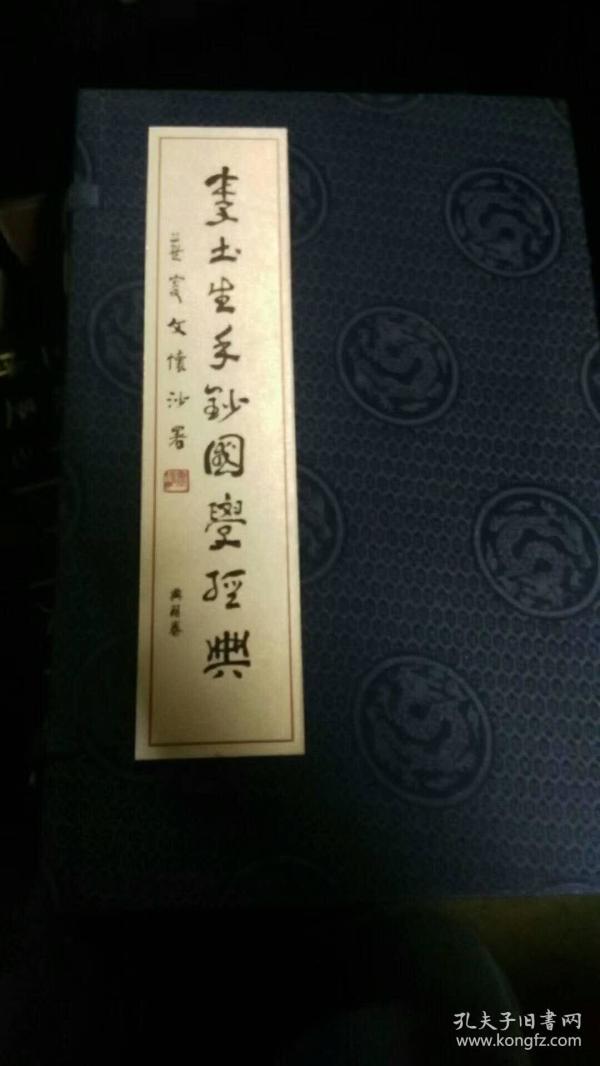 李土生手鈔國學經典
燕叟文懷沙署
典藏卷
孔夫子旧書网
www.kongfz.com